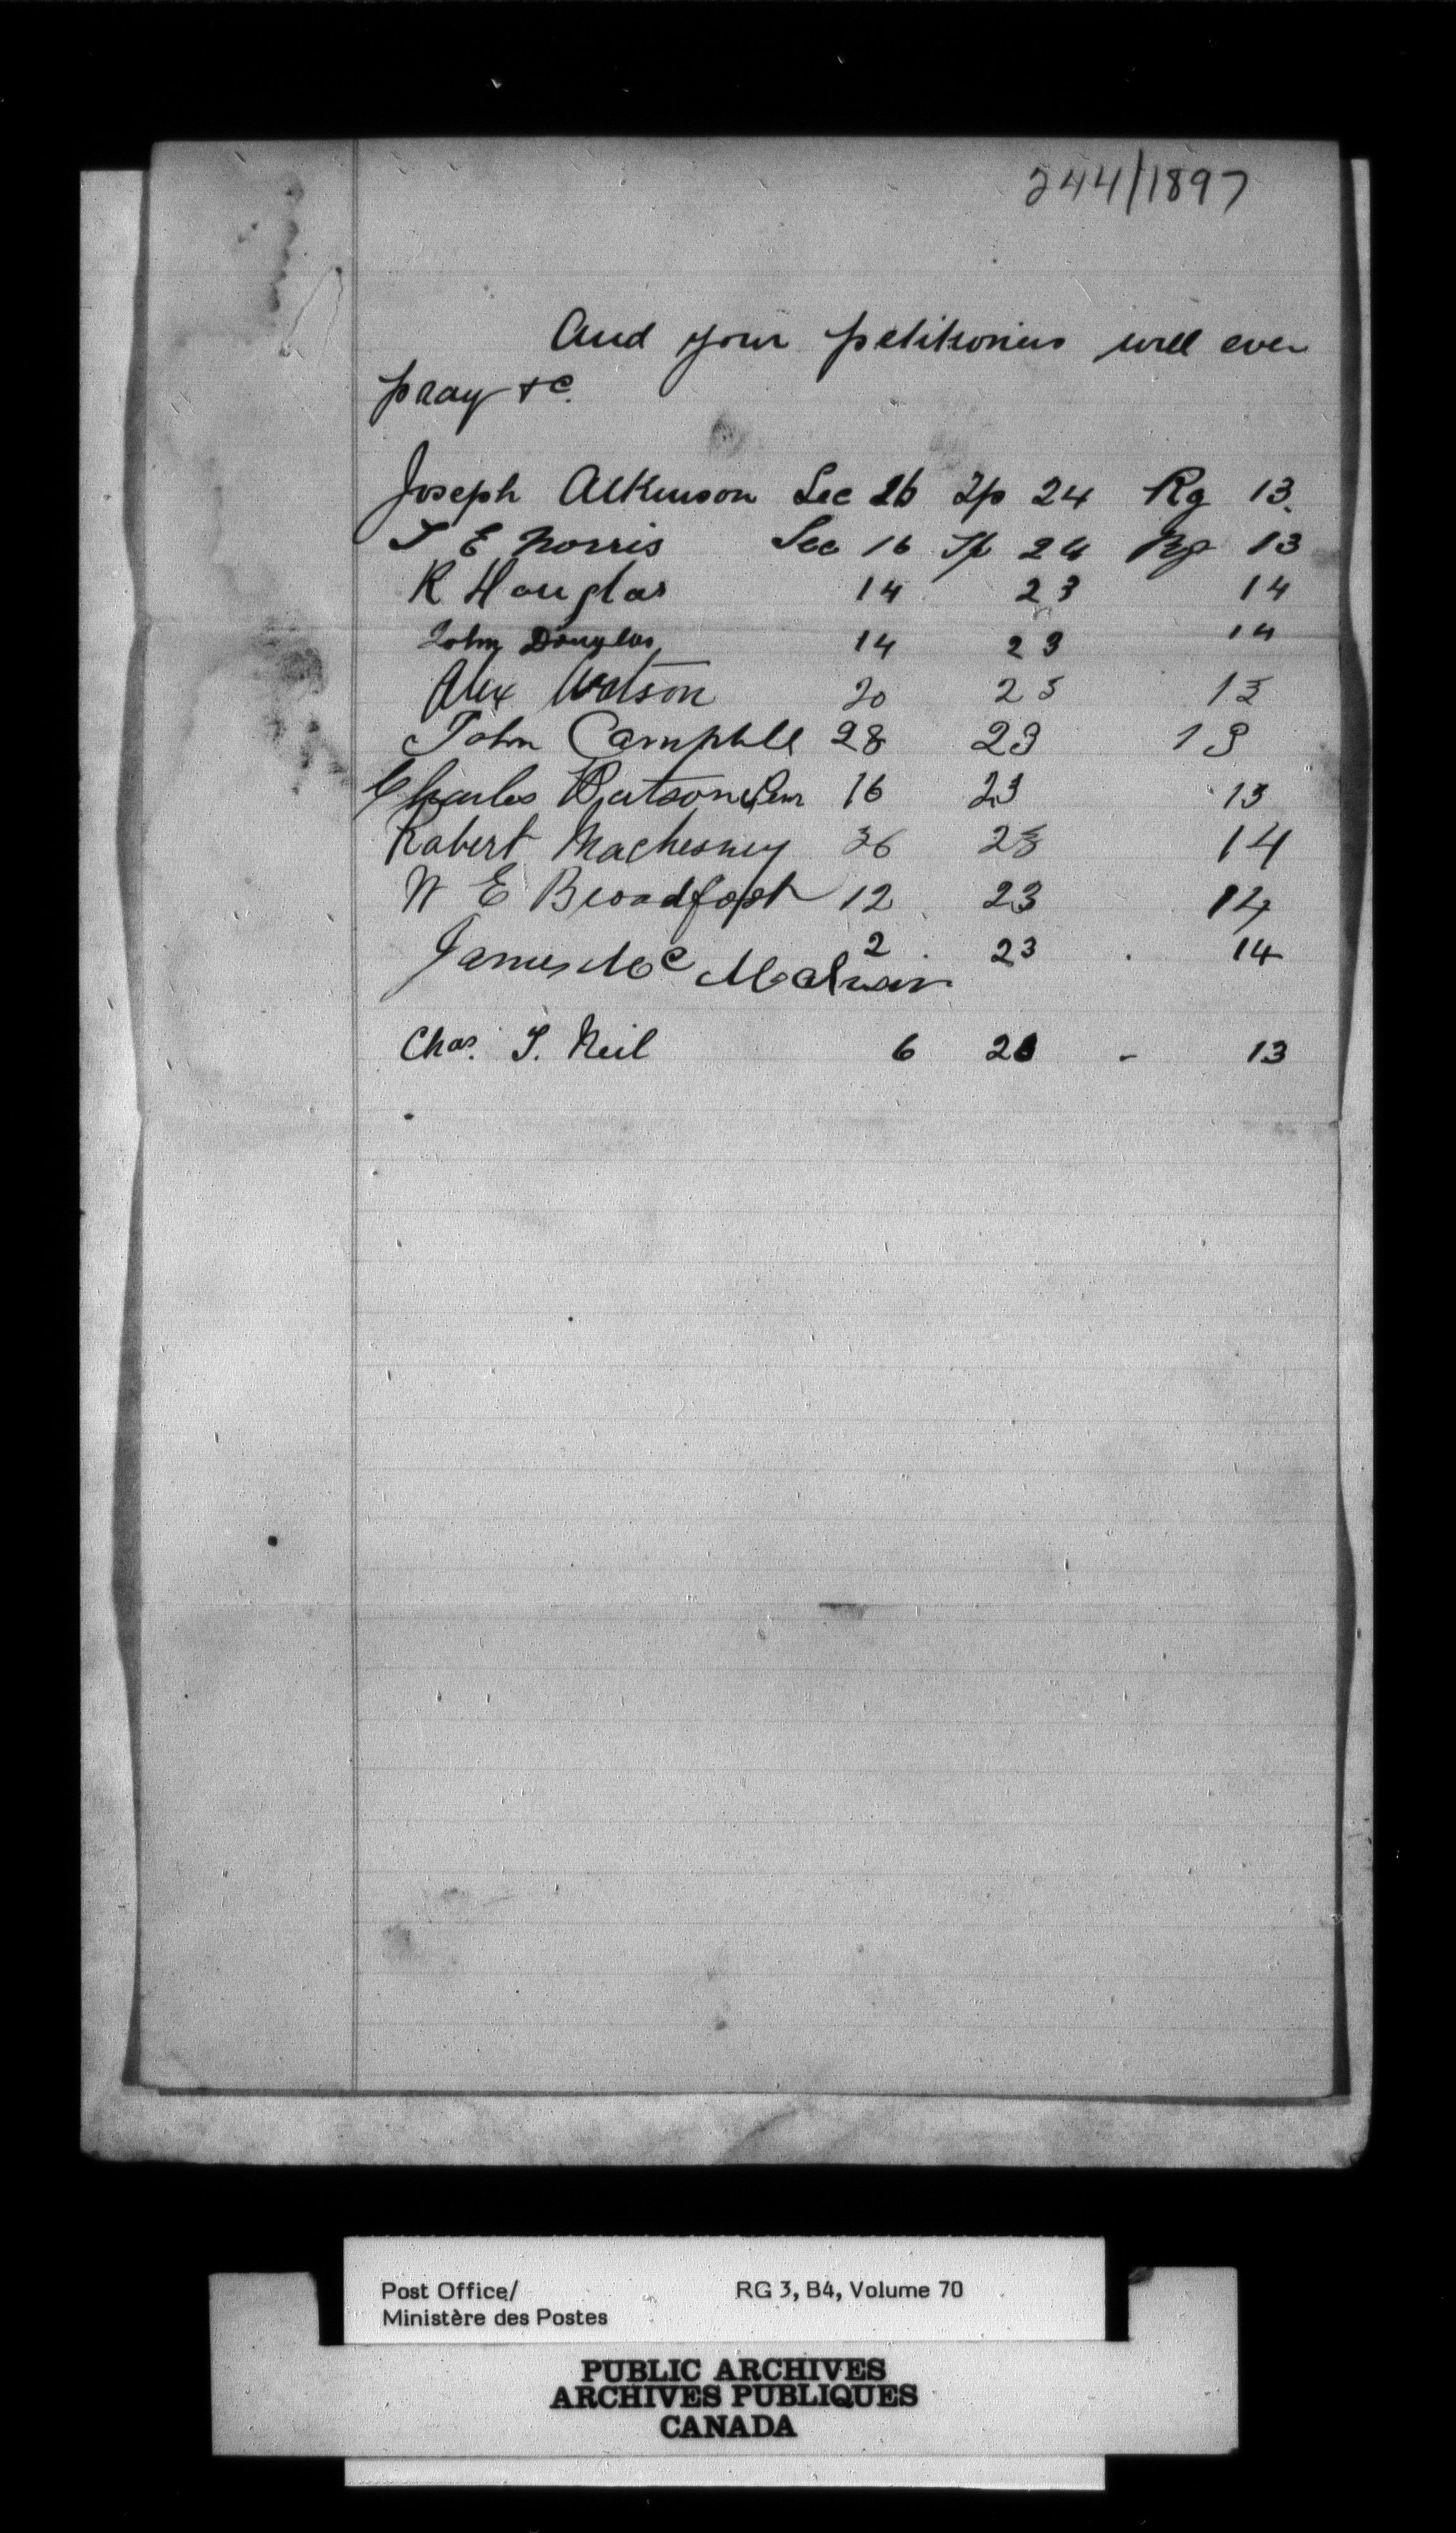 244/1897
And your petitioners will ever
pray &c.
Joseph Atkinson Sec 26 Tp 24 Rg 13.
T E Norris Sec 16 Tp 24 Rg 13
R Houglas 14 23 14
John Douglas 14 23 14
Alex Watson 20 23 13
John Campbell 28 23 13
Charles Watson 16 23 13
Robert Machesney 36 23 14
W E Broadfoot 12 23 14
James Mc 2 23 14
Chas. T. Neil 6 13
Post Office/ RG 3, B4, Volume 70
Ministère des Postes
PUBLIC ARCHIVES
ARCHIVES PUBLIQUES
CANADA